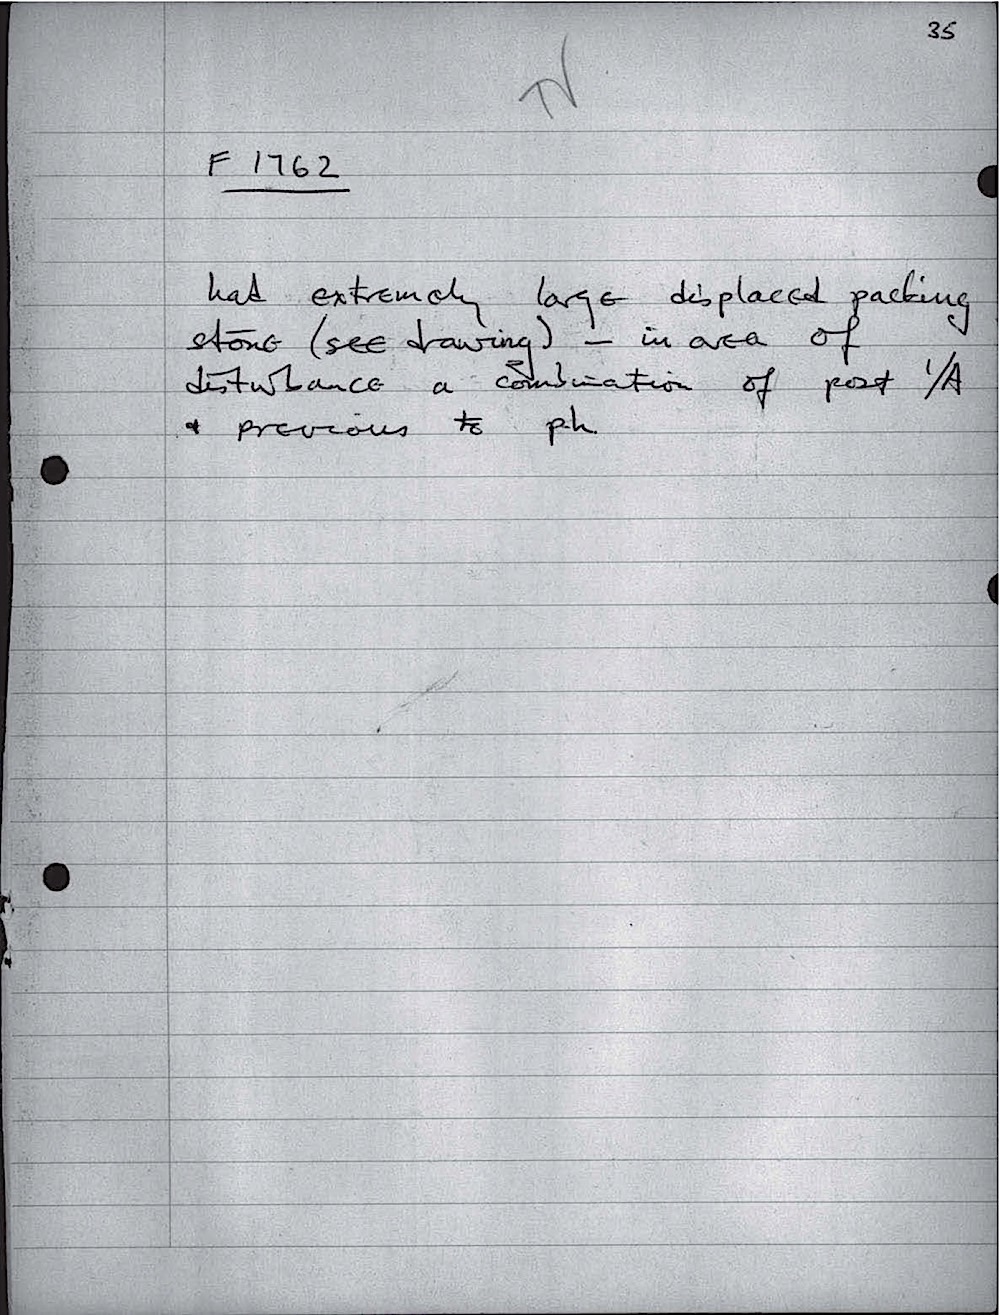 35
F 1762
had extremely large displaced packing
stone (see drawing) – in area of
disturbance a combination of post I/A
& previous to ph.